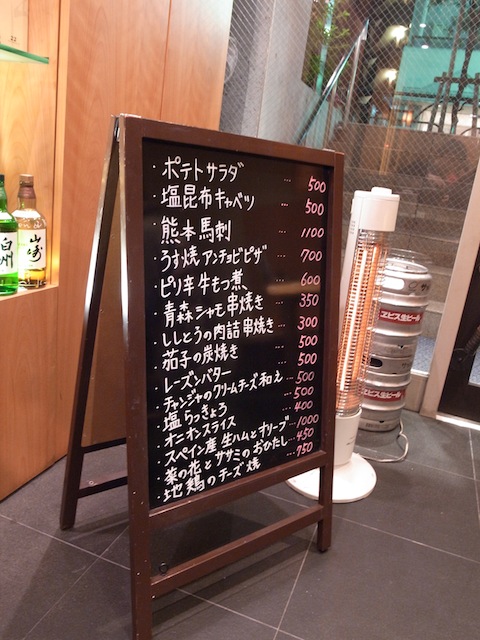 ・ポテトサラダ … 500
・塩昆布キャベツ … 500
・熊本馬刺 … 1100
・うす焼アンチョビピザ … 700
・ピリ辛牛もつ煮 … 600
・青森シャモ串焼き … 350
・ししとうの肉詰串焼き … 300
・茄子の炭焼き … 500
・レーズンバター … 500
・チャンジャのクリームチーズ和え … 500
・塩らっきょう … 500
・オニオンスライス … 400
・スペイン産生ハムとオリーブ … 1000
・菜の花とササミのおひたし … 450
・地鶏のチーズ焼 … 750
白州
山崎
ヱビス生ビール
ヱビス生ビール